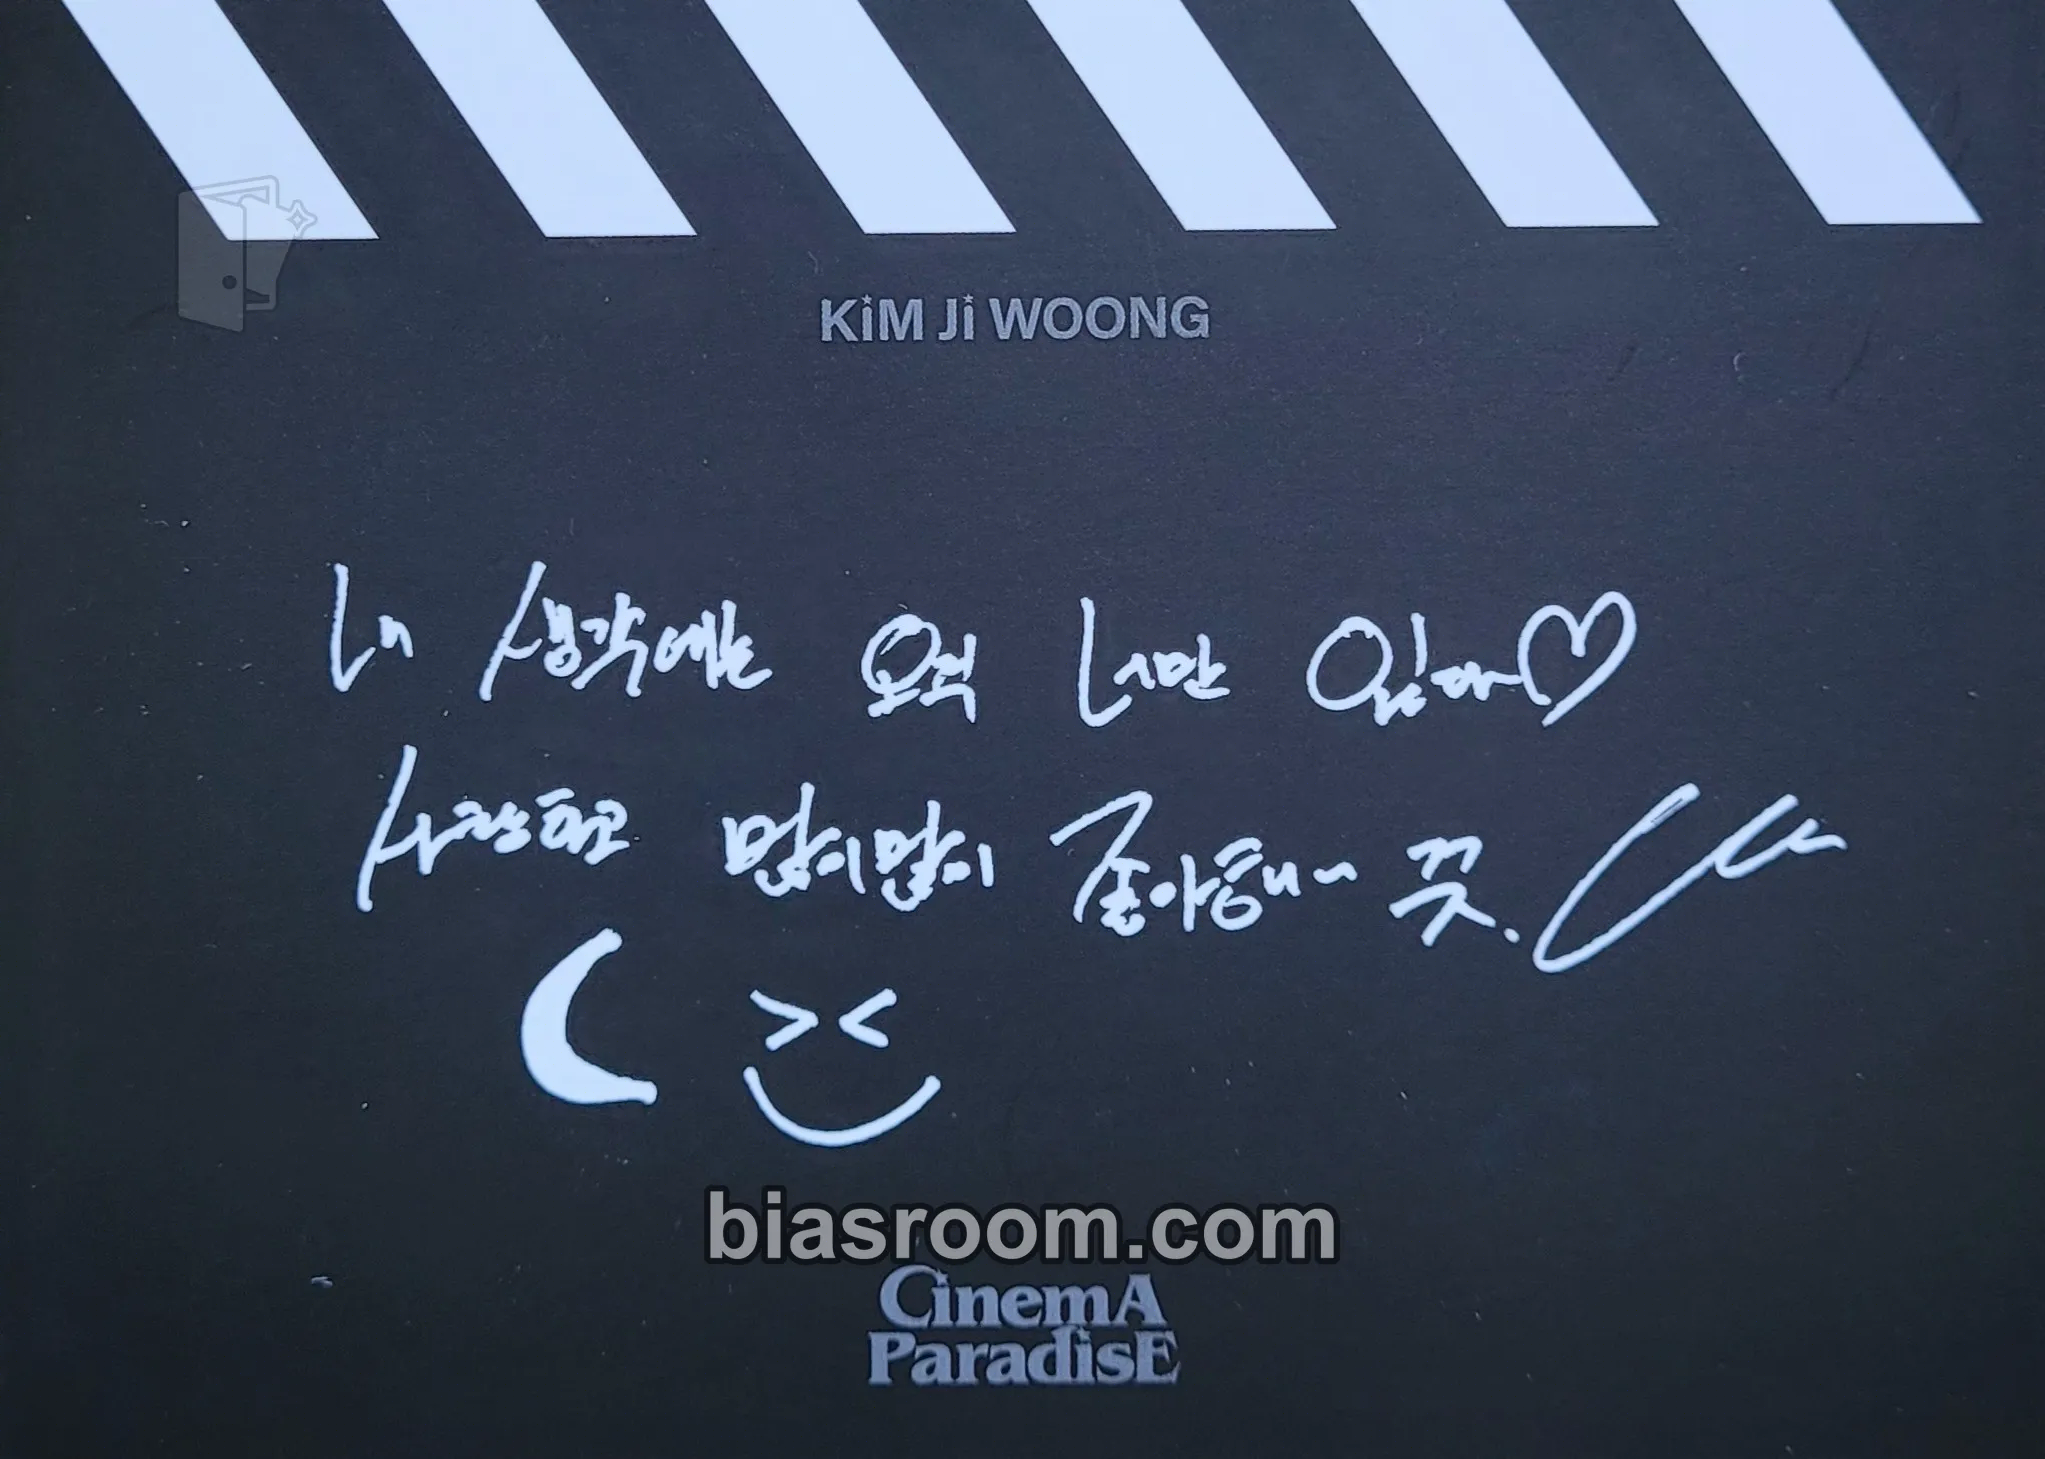 KiM Ji WOONG
내 생각에는 오직 너만 있어♡
사랑하고 많이많이 좋아해~ 꼭.
biasroom.com
CinemA
ParadisE